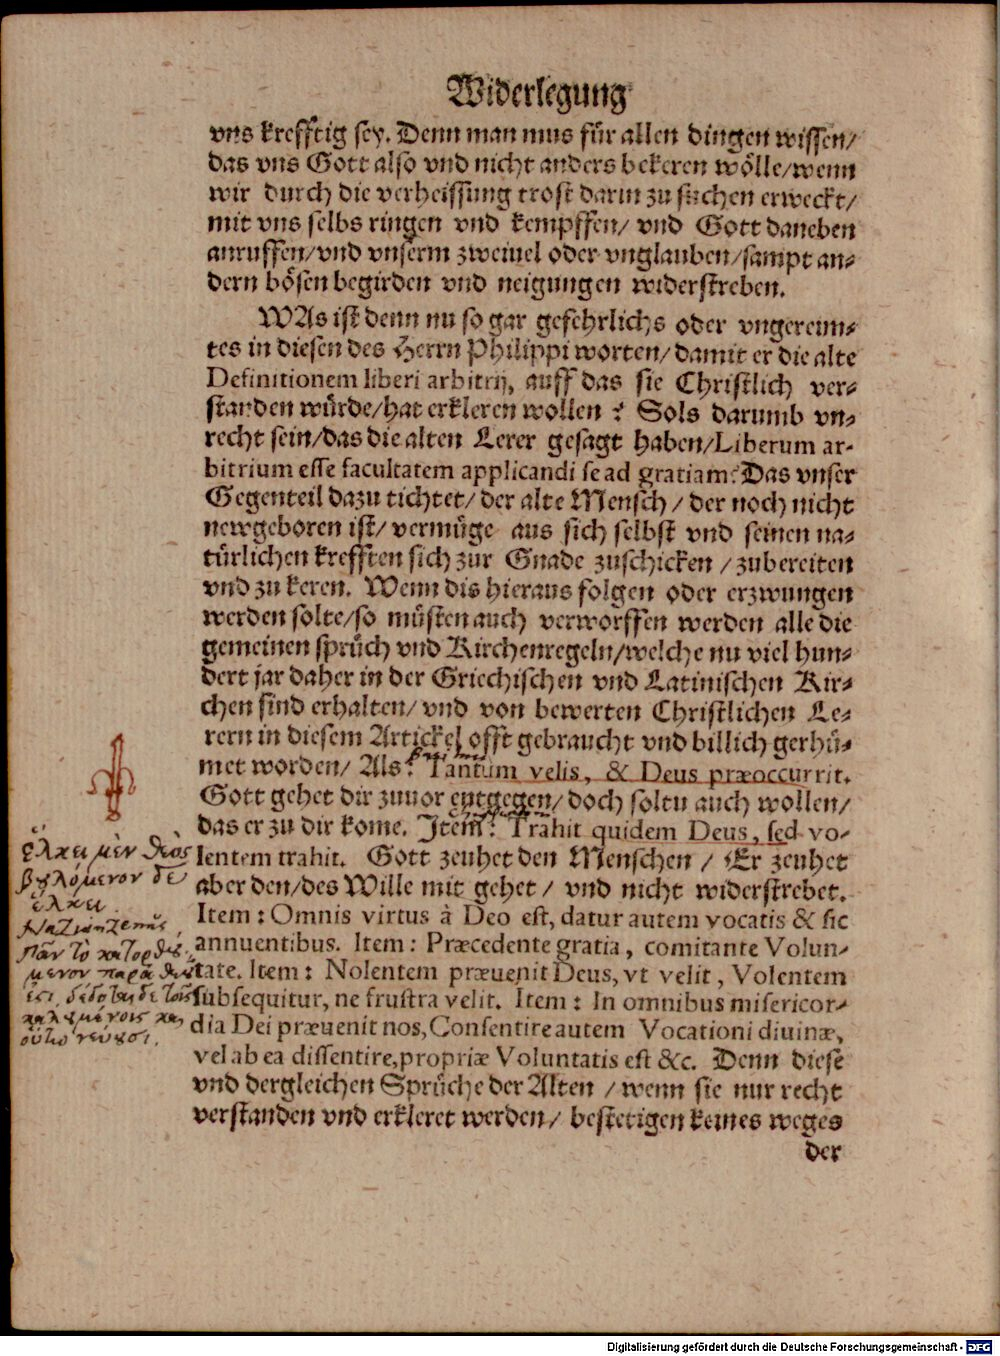 Widerlegung
vns krefftig sey. Denn man mus für allen dingen wissen/
das vns Gott also vnd nicht anders bekeren wölle/wenn
wir durch die verheissung trost darin zu suchen erweckt/
mit vns selbs ringen vnd kempffen/ vnd Gott daneben
anruffen/vnd vnserm zweiuel oder vnglauben/sampt an-
dern bösen begirden vnd neigungen widerstreben.
WAs ist denn nu so gar gefehrlichs oder vngereim-
tes in diesen des Herrn Philippi worten/damit er die alte
Definitionem liberi arbitrij, auff das sie Christlich ver-
standen würde/hat erkleren wollen? Sols darumb vn-
recht sein/das die alten Lerer gesagt haben/Liberum ar-
bitrium esse facultatem applicandi se ad gratiam? Das vnser
Gegenteil dazu tichtet/der alte Mensch/der noch nicht
newgeboren ist/vermüge aus sich selbst vnd seinen na-
türlichen krefften sich zur Gnade zuschicken/zubereiten
vnd zu keren. Wenn dis hieraus folgen oder erzwungen
werden solte/so müsten auch verworffen werden alle die
gemeinen sprüch vnd Kirchenregeln/welche nu viel hun-
dert jar daher in der Griechischen vnd Latinischen Kir-
chen sind erhalten/vnd von bewerten Christlichen Le-
rern in diesem Artickel offt gebraucht vnd billich gerhü-
met worden/ Als: Tantum velis, & Deus præoccurrit.
Gott gehet dir zuuor entgegen/doch soltu auch wollen/
das er zu dir kome. Item: Trahit quidem Deus, sed vo-
lentem trahit. Gott zeuhet den Menschen/ Er zeuhet
aber den/des Wille mit gehet/ vnd nicht widerstrebet.
Item: Omnis virtus à Deo est, datur autem vocatis & sic
annuentibus. Item: Præcedente gratia, comitante Volun-
tate. Item: Nolentem præuenit Deus, vt velit, Volentem
subsequitur, ne frustra velit. Item: In omnibus misericor-
dia Dei præuenit nos, Consentire autem Vocationi diuinæ,
vel ab ea dissentire, propriæ Voluntatis est &c. Denn diese
vnd dergleichen Sprüche der Alten/wenn sie nur recht
verstanden vnd erkleret werden/ bestetigen keines weges
der
ἕλκει μὲν θεὸς
βȣλόμενον δὲ
ἕλκει
Nazianzenus
πᾶν τὸ κατορθȣ́-
μενον παρὰ θεȣ͂
ἐςι, δέδοται δὲ τοῖς
καλȣμένοις καὶ
οὕτω νεύȣσι.
Digitalisierung gefördert durch die Deutsche Forschungsgemeinschaft - DFG